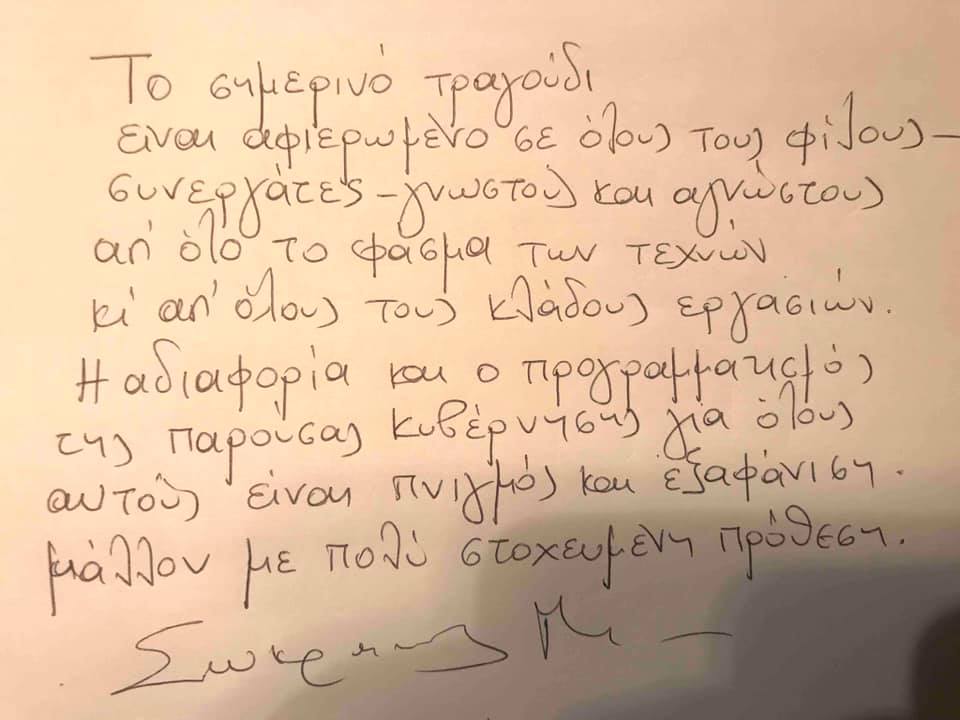 Το σημερινό τραγούδι
είναι αφιερωμένο σε όλους τους φίλους–
συνεργάτες–γνωστούς και αγνώστους
απ' όλο το φάσμα των τεχνών
κι' απ' όλους τους κλάδους εργασιών.
Η αδιαφορία και ο προγραμματισμός
της παρούσας κυβέρνησης για όλους
αυτούς είναι πνιγμός και εξαφάνιση.
μάλλον με πολύ στοχευμένη πρόθεση.
Σωκράτης Μ